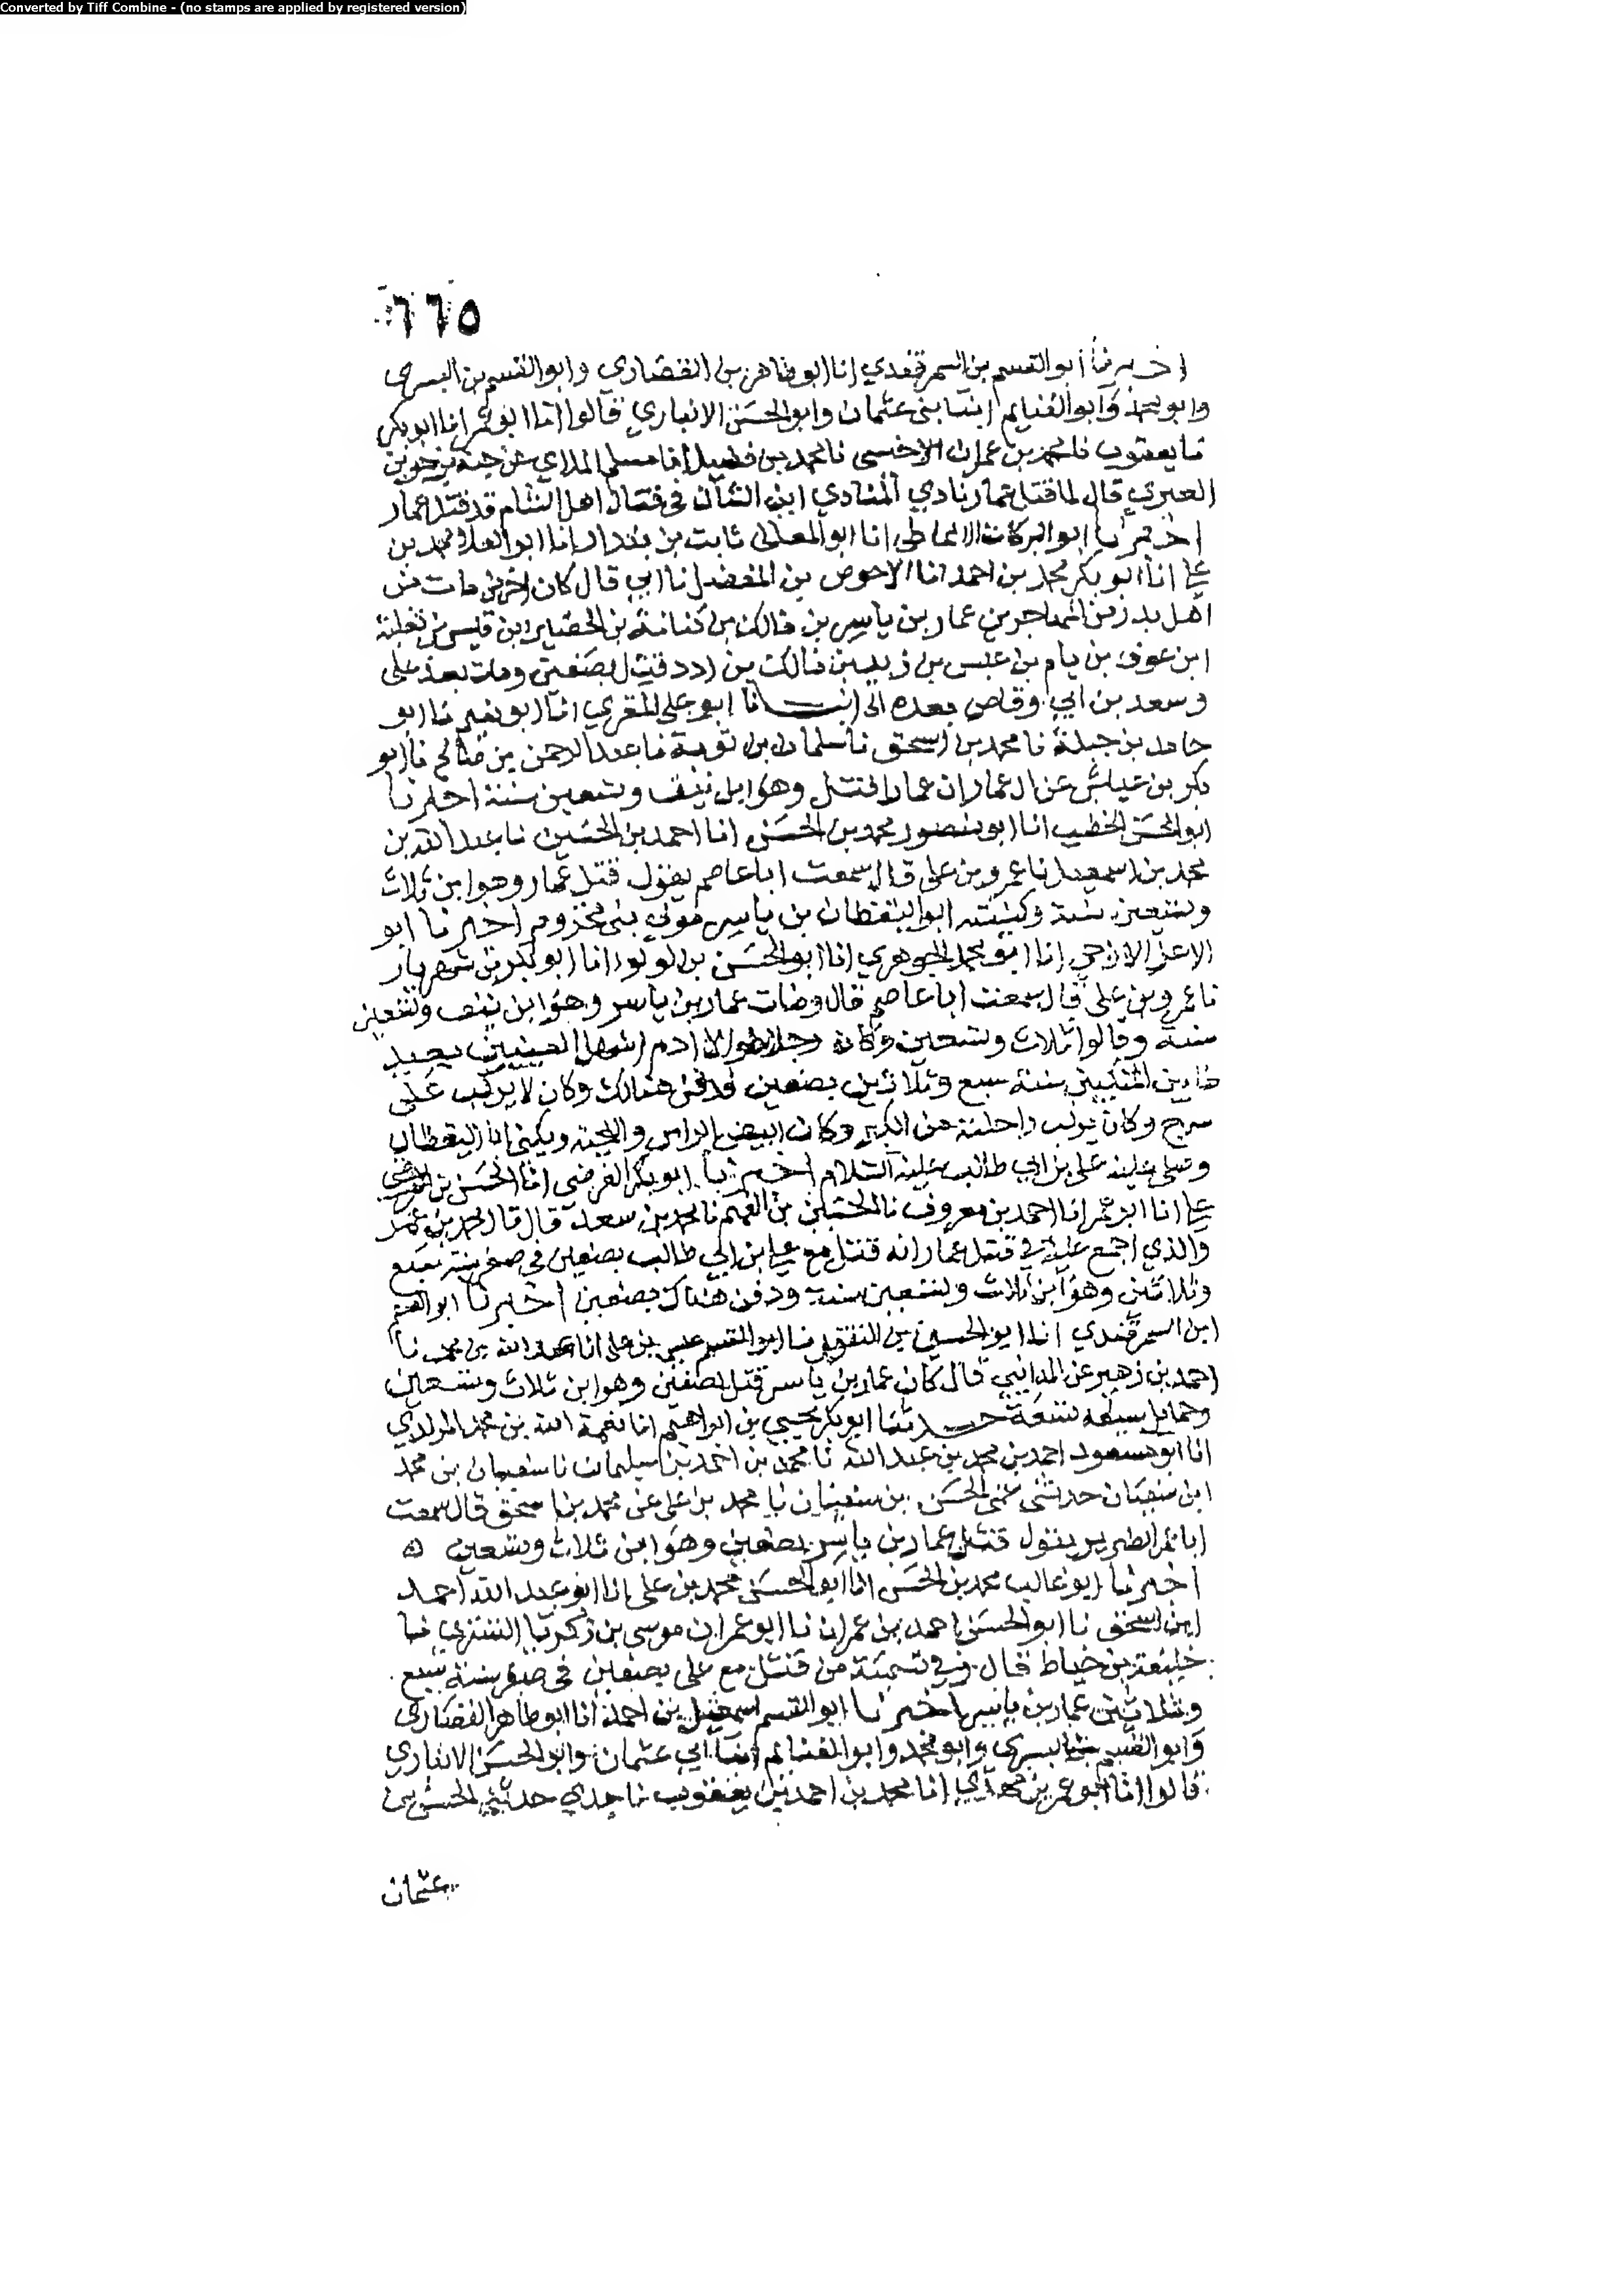 Converted by Tiff Combine - (no stamps are applied by registered version)
٦٦٥
اخبرنا أبو القسم بن السمرقندي انا ابو طاهر بن القصاري وابو القسم بن البسري
وابو محمد وابو الغنايم ابنا بنى عثمان وابو الحسن الانباري قالوا انا ابو عمر انا ابو بكر
نا يعقوب نا محمد بن عمران الاخنسى نا محمد بن فضيل انا مسلم الملاي عن حبة بن جوين
العبري قال لما قتل عمار نادي المنادي اين الشأن فى قتال اهل الشام قد قتل عمار
اخبرنا ابو البركات الانماطي انا ابو المعالى ثابت بن بندار انا ابو العلا محمد بن
علي انا ابو بكر محمد بن احمد انا الاحوص بن المفضل انا ابي قال كان اخر من مات من
اهل بدر من المهاجرين عمار بن ياسر بن مالك بن كنانة بن الحصين ابن قيس بن ثعلبة
ابن عوف بن يام بن عبس بن زيد بن مالك بن ادد قتل بصفين ومات بعد على
وسعد بن ابي وقاص بعده الى انبانا ابو على المقري انا ابو نعيم نا ابو
حامد بن جبلة نا محمد بن اسحق نا سلمان بن توبة نا عبد الرحمن بن صالح نا ابو
بكر بن عياش عن ال عمار ان عمارا قتل وهو ابن نيف وتسعين سنة اخبرنا
ابو الحسن الخطيب انا ابو منصور محمد بن الحسن انا احمد بن الحسين نا عبد الله بن
محمد بن اسمعيل نا عمرو بن على قال سمعت ابا عاصم يقول قتل عمار وهو ابن ثلاث
وتسعين سنة وكنيته ابو اليقظان بن ياسر مولي بنى مخزوم اخبرنا ابو
الاعز الازجي انا ابو محمد الجوهري انا ابو الحسن بن لولو انا ابو بكر بن شهريار
نا عمرو بن على قال سمعت ابا عاصم قال ومات عمار بن ياسر وهو ابن نيف وتسعين
سنة وقالوا ثلاث وتسعين وكان رجلا طوالا ادم اشهل العينين بعيد
ما بين المنكبين سنة سبع وثلاثين بصفين ودفن هنالك وكان لا يركب على
سرج وكان يركب راحلته من الكبر وكان ابيض الراس واللحية ويكنى ابا اليقظان
وصلى عليه على بن ابي طالب عليه السلام اخبرنا ابو بكر الفرضى انا الحسن بن
علي انا ابو عمر انا احمد بن معروف نا الحسين بن الفهم نا محمد بن سعد قال قال محمد بن عمر
والذي اجمع عليه في قتل عمار انه قتل مع علي ابن ابي طالب بصفين فى صفر سنة سبع
وثلاثين وهو ابن ثلاث وتسعين سنة ودفن هناك بصفين اخبرنا ابو القسم
ابن السمرقندي انا ابو الحسين بن النقور نا ابو القسم عيسى بن على انا عبد الله بن محمد نا
احمد بن زهير عن المدايني قال كان عمار بن ياسر قتل بصفين وهو ابن ثلاث وتسعين
حدثنا ابو بكر يحيى بن ابراهيم انا نعمة الله بن محمد المرندي
انا ابو مسعود احمد بن محمد بن عبد الله نا محمد بن احمد بن سليمان نا سفيان بن محمد
ابن سفيان حدثنى عمى الحسن بن سفيان نا محمد بن على عن محمد بن اسحق قال سمعت
ابا عمر الضرير يقول قتل عمار بن ياسر بصفين وهو ابن ثلاث وتسعين ه
اخبرنا ابو غالب محمد بن الحسن انا ابو الحسن محمد بن على انا ابو عبد الله احمد
ابن اسحق نا ابو الحسن احمد بن عمران نا ابو عمران موسى بن زكريا التستري نا
خليفة بن خياط قال في تسمية من قتل مع على بصفين فى صفر سنة سبع
وثلاثين عمار بن ياسر اخبرنا ابو القسم اسمعيل بن احمد انا ابو طاهر القصاري
وابو القسم بن البسري وابو محمد وابو الغنايم ابنا ابي عثمان وابو الحسن الانباري
قالوا انا ابو عمر بن مهدي انا محمد بن احمد بن يعقوب نا جدي حدثني الحسن بن
عثمان